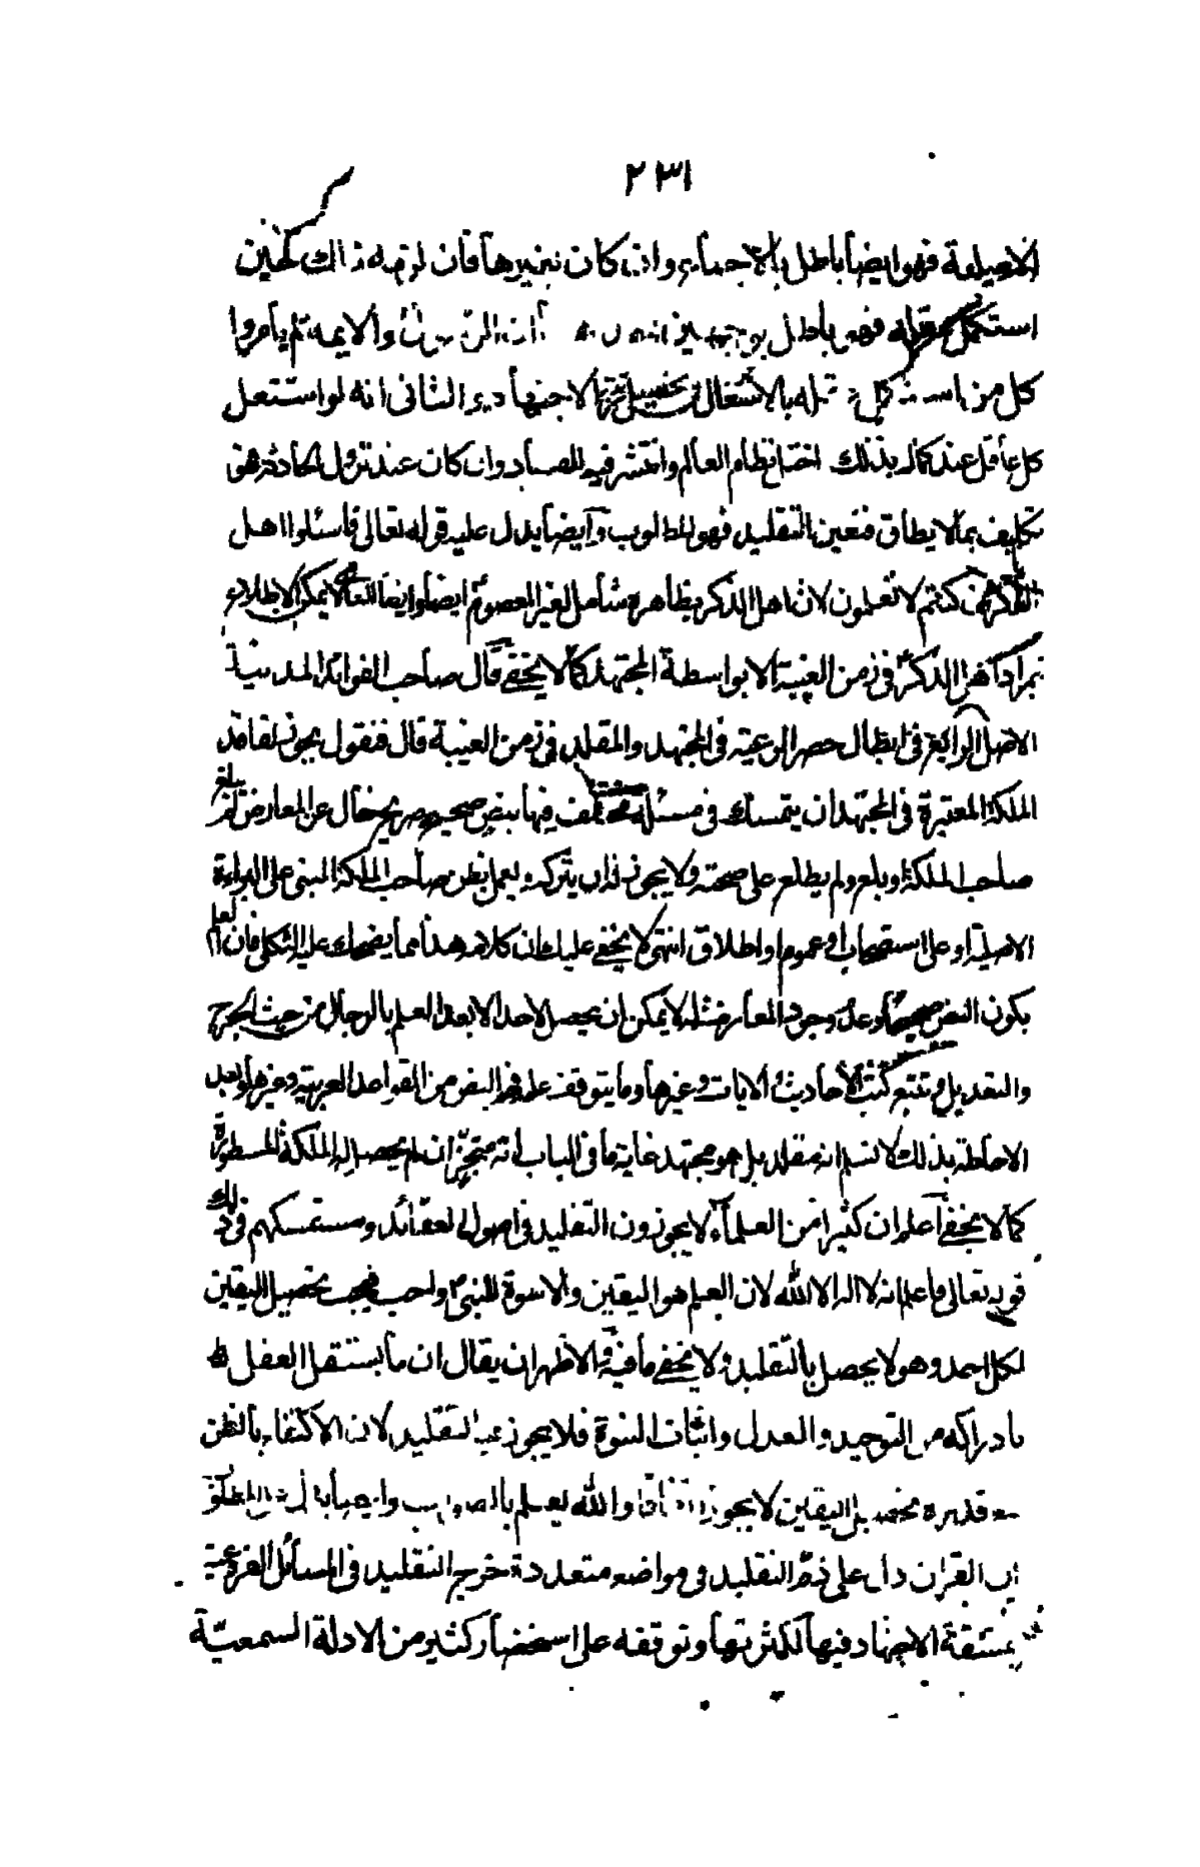 ٢٣١
الاصلية فهو ايضا باطل بالاجماع وان كان بغيرها فان لزم ذلك حين
استكمل عقله فهو باطل بوجهين والايمة لم يأمروا
كل من استكمل عقله بالاشتغال بتحصيل رتبة الاجتهاد الثانى انه لو اشتغل
كل عاقل عند كماله بذلك اختل نظام العالم وانتشر فيه الفساد وان كان عند نزول الحادثة فهو
تكليف بما لا يطاق فتعين التقليد فهو المطلوب وايضا يدل عليه قوله تعالى فاسئلوا اهل
الذكر ان كنتم لا تعلمون لان اهل الذكر بظاهره شامل لغير المعصوم ايضا وايضا لا يمكن الاطلاع
بمراد اهل الذكر فى زمن الغيبة الا بواسطة المجتهد كما لا يخفى قال صاحب الفوائد المدنية
الاصل الرابع فى ابطال حصر الرعية فى المجتهد والمقلد فى زمن الغيبة قال فنقول يجوز لفاقد
الملكة المعتبرة فى المجتهد ان يتمسك فى مسئلة مختلف فيها بنص صحيح صريح خال عن المعارض لم يبلغ
صاحب الملكة او بلغ ولم يطلع على صحته ولا يجوز له ان يتركه ويعمل بظن صاحب الملكة المبنى على البراءة
الاصلية او على استصحاب او عموم او اطلاق انتهى لا يخفى عليك ان كلامه هذا مما يضحك عليه الثكلى فان العلم
بكون النص صحيحا وعدم وجود المعارض له لا يمكن ان يحصل لاحد الا بعد العلم بالرجال من حيث الجرح
والتعديل وتتبع كتب الاحاديث والايات وغيرها وما يتوقف عليه فهم النص من القواعد العربية وغيرها وبعد
الاحاطة بذلك لا نسلم انه مقلد بل هو مجتهد غاية ما فى الباب انه متجز ان لم يحصل له الملكة المسطورة
كما لا يخفى اعلم ان كثيرا من العلماء لا يجوزون التقليد فى اصول العقائد ومستمسكهم فى ذلك
قوله تعالى فاعلم انه لا اله الا الله لان العلم هو اليقين والاسوة للنبى واجب فيجب تحصيل اليقين
لكل احد وهو لا يحصل بالتقليد ولا يخفى ما فيه والاظهر ان يقال ان ما يستقل العقل
بادراكه من التوحيد والعدل واثبات النبوة فلا يجوز فيه التقليد لان الاكتفاء بالظن
مع قدرة تحصيل اليقين لا يجوز اتفاقا والله يعلم بالصواب وايضا
القران دل على ذم التقليد فى مواضع متعددة خرج التقليد فى المسائل الفرعية
بمشقة الاجتهاد فيها لكثرتها وتوقفه على استحضار كثير من الادلة السمعية